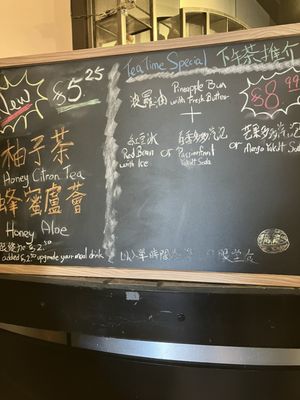 New
$5.25
柚子茶
Honey Citron Tea
蜂蜜蘆薈
Honey Aloe
added $2.50 upgrade your meal drink
Tea Time Special 下午茶推介
菠蘿油 Pineapple Bun
with Fresh Butter
$8.99
+
紅豆冰
Red Bean
with Ice
or
百香多多梳打
Passionfruit
Yakult Soda
or
芒果多多梳打
Mango Yakult Soda